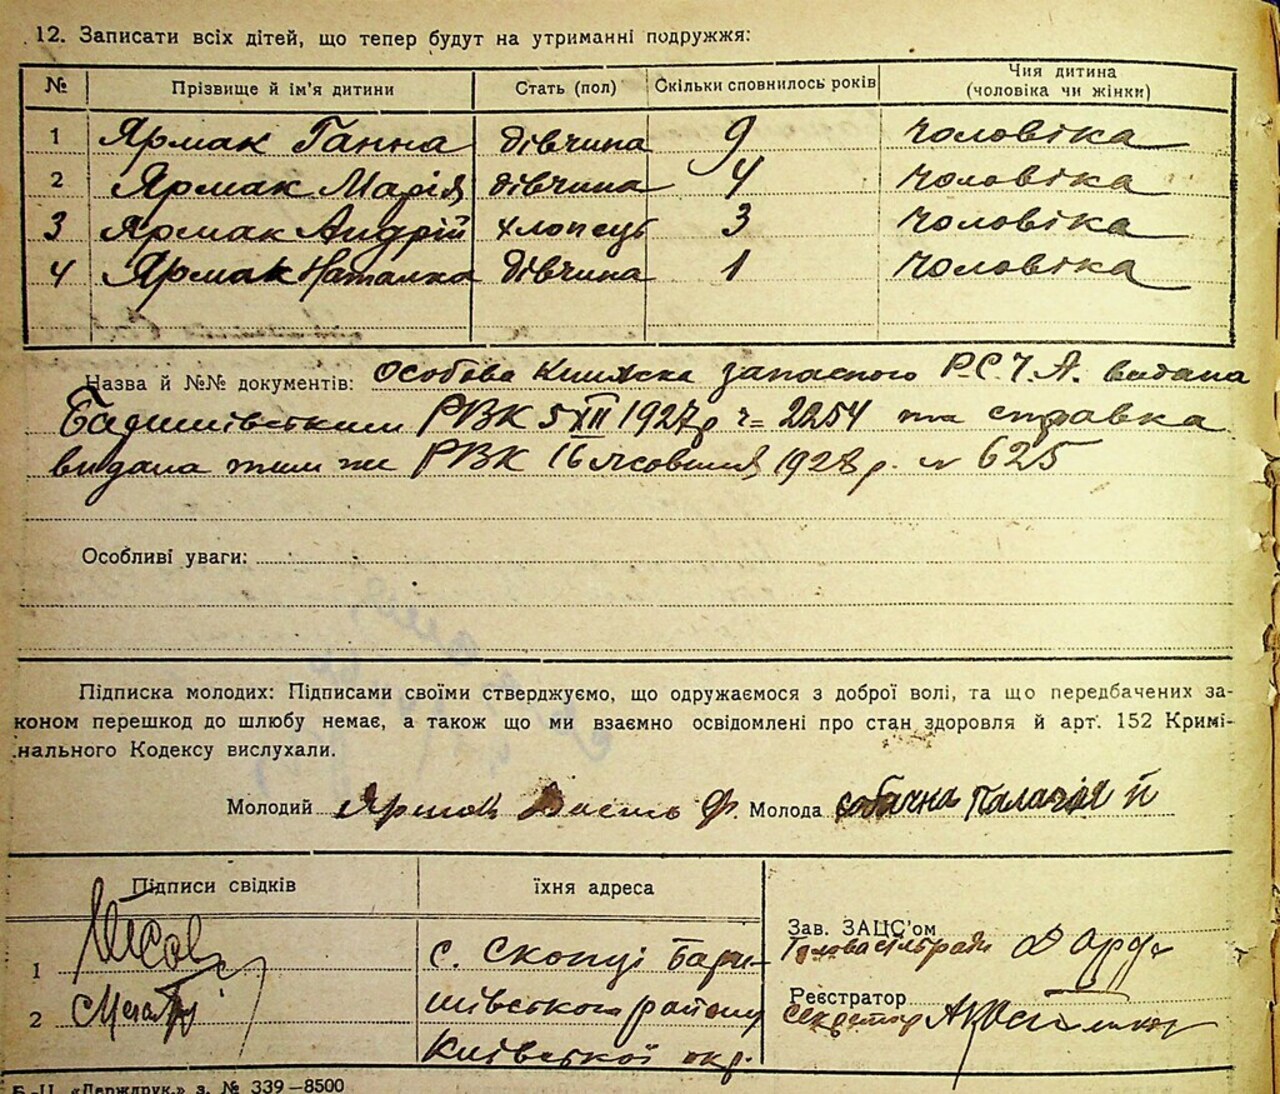 12. Записати всіх дітей, що тепер будут на утриманні подружжя:
№ Прізвище й ім'я дитини Стать (пол) Скільки сповнилось років Чия дитина (чоловіка чи жінки)
1 Ярмак Ганна дівчина 9 чоловіка
2 Ярмак Марія дівчина 4 чоловіка
3 Ярмак Андрій хлопець 3 чоловіка
4 Ярмак Наталка дівчина 1 чоловіка
Назва й №№ документів: Особова книжка запасного Р.С.Ч.А. видана
РВК 5 XII 1927 р ч= 2254 та справка
видана тим же РВК 16 жовтня 1928 р. № 625
Особливі уваги:
Підписка молодих: Підписами своїми стверджуємо, що одружаємося з доброї волі, та що передбачених за-
коном перешкод до шлюбу немає, а також що ми взаємно освідомлені про стан здоровля й арт. 152 Кримі-
нального Кодексу вислухали.
Молодий Ярмак Василь Ф. Молода Собачна Палачія Й
Підписи свідків їхня адреса
Зав. ЗАЦС'ом
Голова сільради
1 с. Скопці Бари-
Реєстратор
2 шівського району Секретар
Київської окр.
Б.-Ц. «Держдрук.» з. № 339—8500